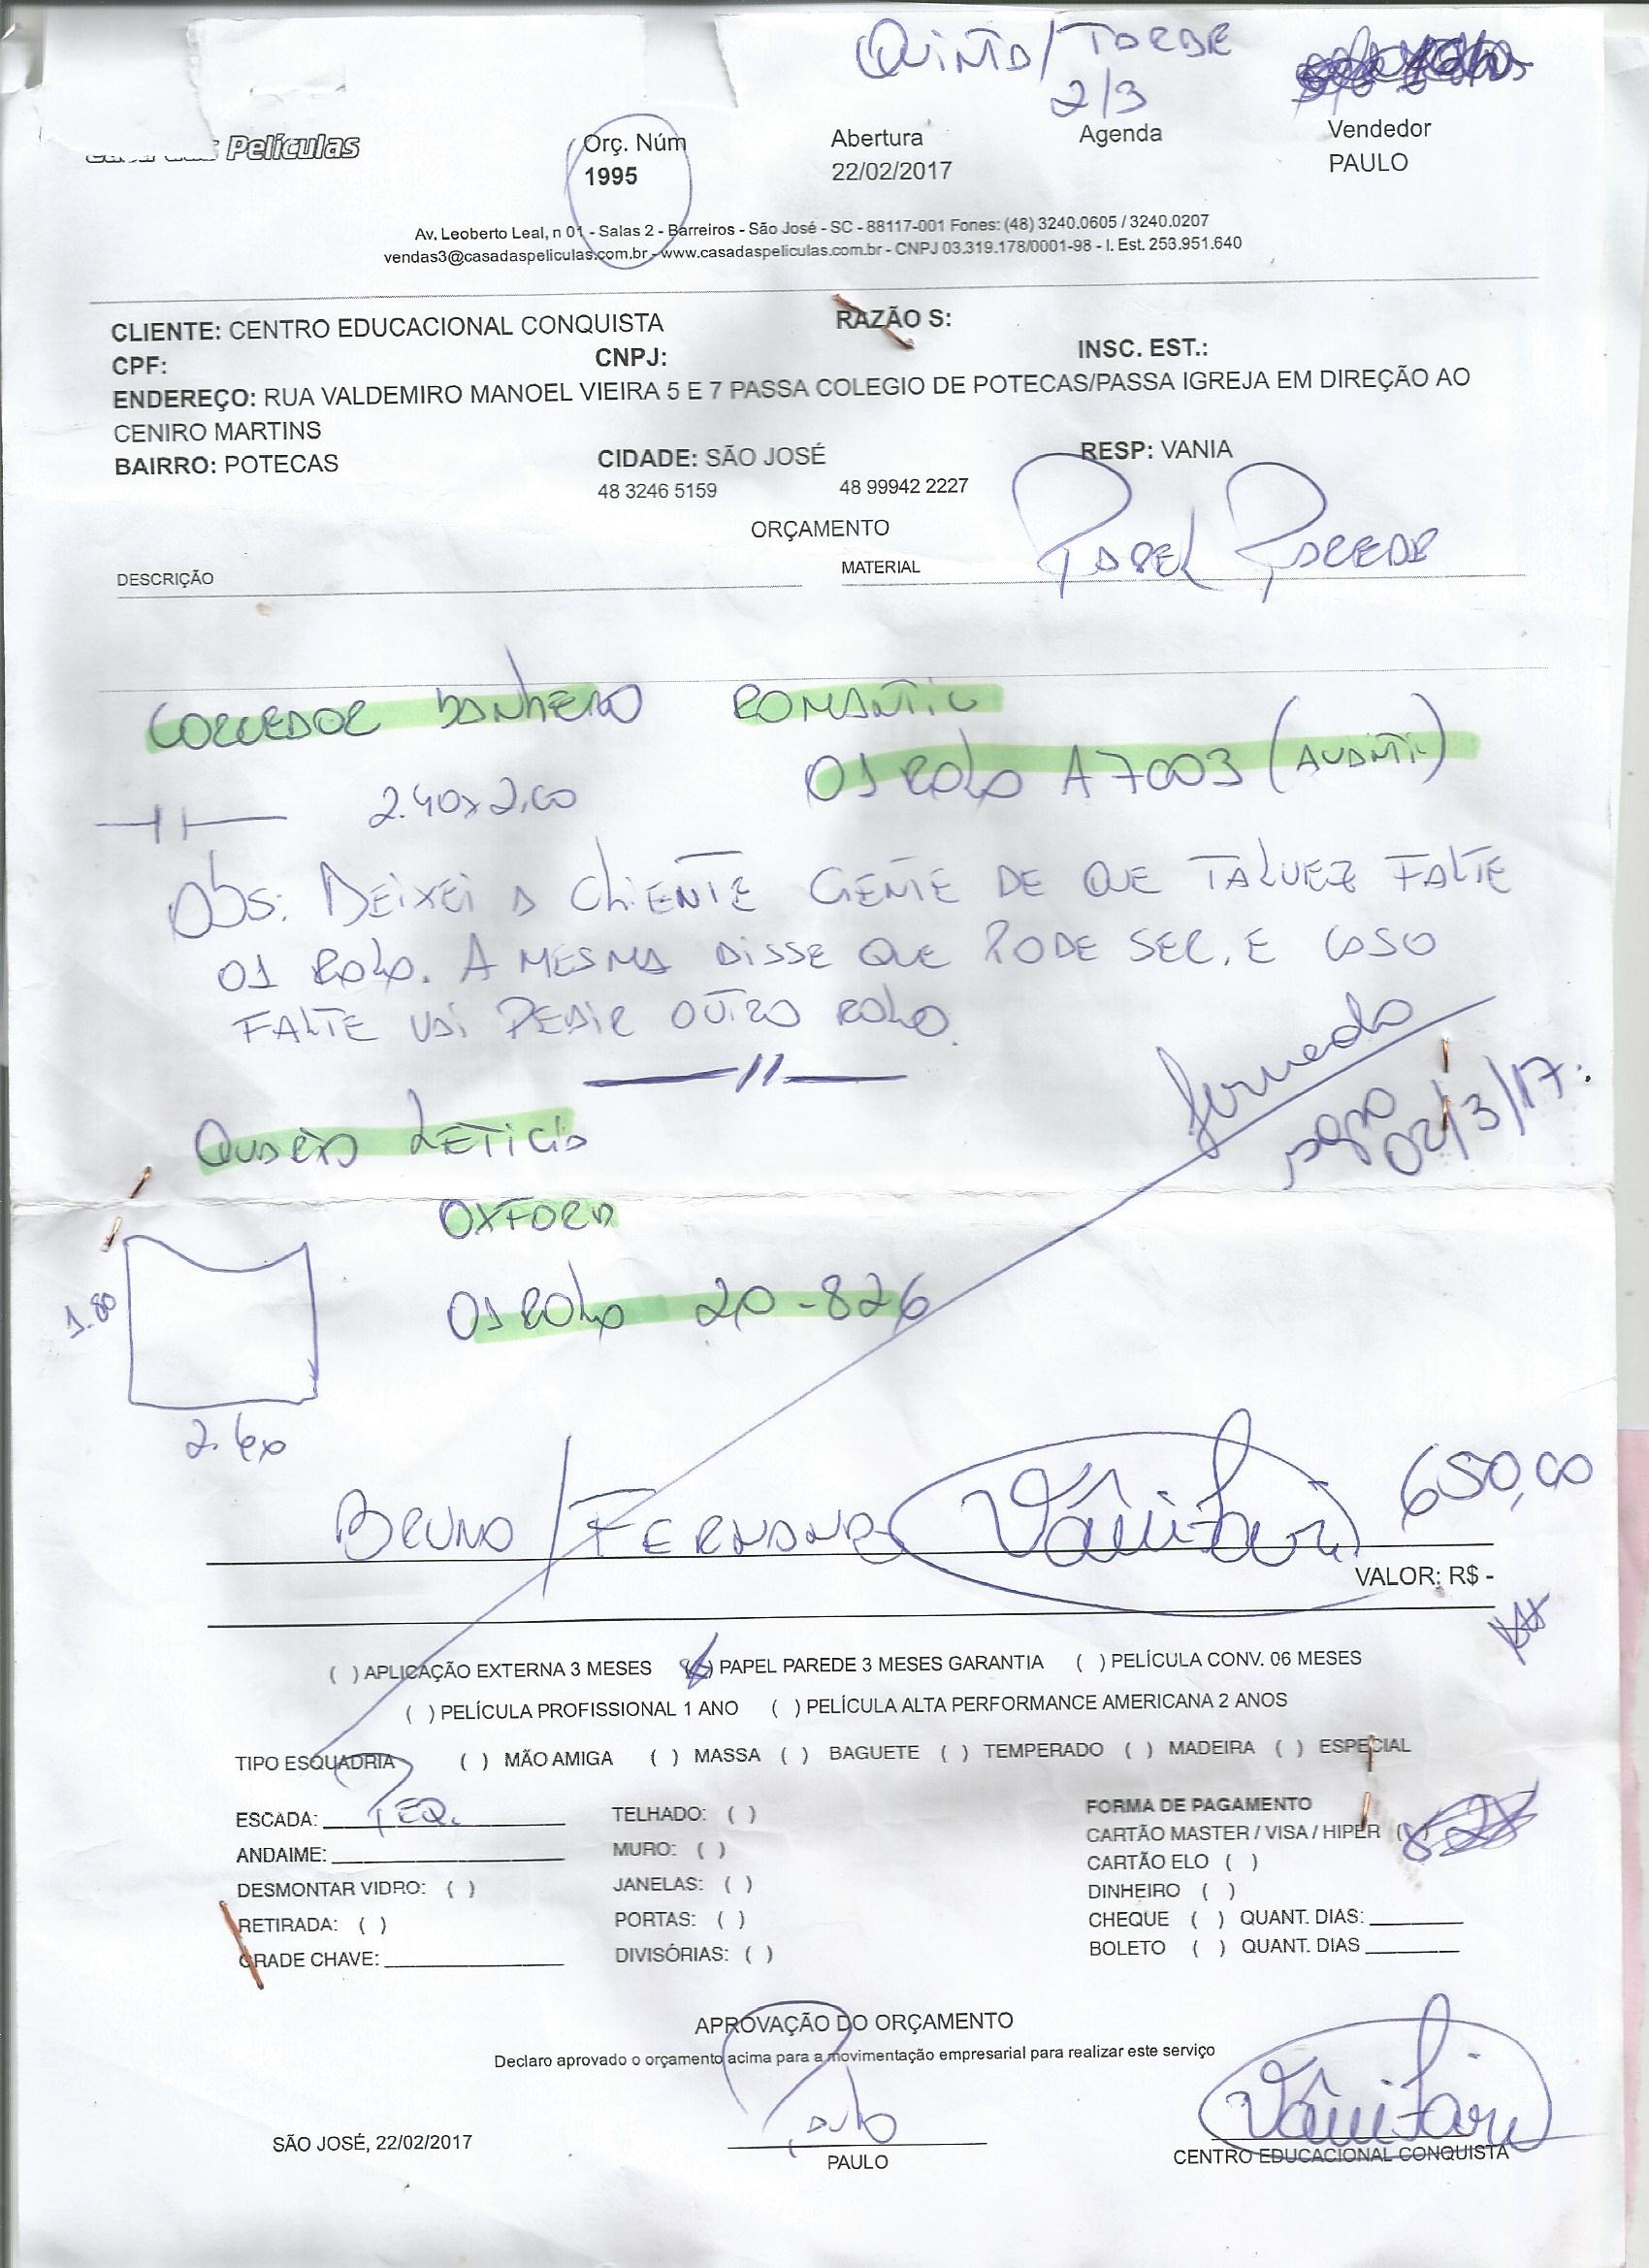 QUINTA/TARDE
2/3
Películas
Orç. Núm
1995
Abertura
22/02/2017
Agenda
Vendedor
PAULO
Av. Leoberto Leal, n 01 - Salas 2 - Barreiros - São José - SC - 88117-001 Fones: (48) 3240.0605 / 3240.0207
vendas3@casadaspeliculas.com.br - www.casadaspeliculas.com.br - CNPJ 03.319.178/0001-98 - I. Est. 253.951.640
CLIENTE: CENTRO EDUCACIONAL CONQUISTA RAZÃO S:
CPF: CNPJ: INSC. EST.:
ENDEREÇO: RUA VALDEMIRO MANOEL VIEIRA 5 E 7 PASSA COLEGIO DE POTECAS/PASSA IGREJA EM DIREÇÃO AO
CENIRO MARTINS
BAIRRO: POTECAS CIDADE: SÃO JOSÉ RESP: VANIA
48 3246 5159 48 99942 2227
ORÇAMENTO
DESCRIÇÃO MATERIAL PAPEL PAREDE
CORREDOR BANHEIRO ROMANTIC
01 ROLO A7003 (AVANTI)
2.40x2,60
OBS: DEIXEI A CLIENTE CIENTE DE QUE TALVEZ FALTE
01 ROLO. A MESMA DISSE QUE PODE SER, E CASO
FALTE VAI PEDIR OUTRO ROLO.
QUARTO LETICIA
pago
02/3/17.
OXFORD
01 ROLO 20-826
1.80
2.60
BRUNO/FERNANDO
650,00
VALOR: R$ -
( ) APLICAÇÃO EXTERNA 3 MESES (X) PAPEL PAREDE 3 MESES GARANTIA ( ) PELÍCULA CONV. 06 MESES
( ) PELÍCULA PROFISSIONAL 1 ANO ( ) PELÍCULA ALTA PERFORMANCE AMERICANA 2 ANOS
TIPO ESQUADRIA ( ) MÃO AMIGA ( ) MASSA ( ) BAGUETE ( ) TEMPERADO ( ) MADEIRA ( ) ESPECIAL
ESCADA: PEQ.
ANDAIME:
DESMONTAR VIDRO: ( )
RETIRADA: ( )
GRADE CHAVE:
TELHADO: ( )
MURO: ( )
JANELAS: ( )
PORTAS: ( )
DIVISÓRIAS: ( )
FORMA DE PAGAMENTO
CARTÃO MASTER / VISA / HIPER (
CARTÃO ELO ( )
DINHEIRO ( )
CHEQUE ( ) QUANT. DIAS:
BOLETO ( ) QUANT. DIAS
APROVAÇÃO DO ORÇAMENTO
Declaro aprovado o orçamento acima para a movimentação empresarial para realizar este serviço
Paulo
SÃO JOSÉ, 22/02/2017
PAULO
CENTRO EDUCACIONAL CONQUISTA